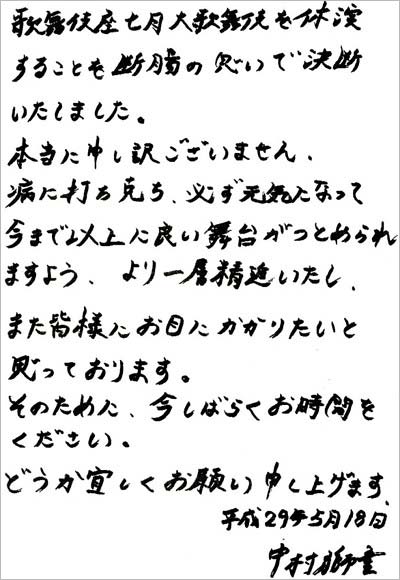 歌舞伎座七月大歌舞伎を休演
することも断腸の思いで決断
いたしました。
本当に申し訳ございません、
病に打ち克ち、必ず元気になって
今まで以上に良い舞台がつとめられ
ますよう、より一層精進いたし、
また皆様にお目にかかりたいと
思っております。
そのために、今しばらくお時間を
ください。
どうか宜しくお願い申し上げます。
平成29年5月18日
中村獅童